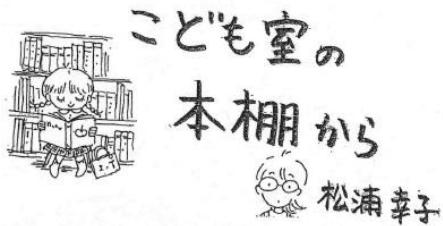 こども室の
本棚から
松浦幸子